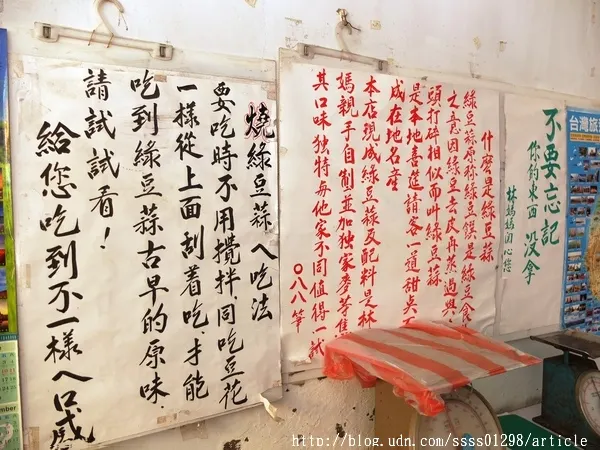 燒綠豆蒜ㄟ吃法
要吃時不用攪拌.同吃豆花
一樣從上面刮着吃才能
吃到綠豆蒜古早的原味.
請試試看！
給您吃到不一樣ㄟ口感
什麼是綠豆蒜
綠豆蒜原称綠豆饌是綠豆食
之意因綠豆去皮再蒸過與
頭打碎相似而叫綠豆蒜
是本地喜筵請客一道甜点
成在地名产
本店現成綠豆蒜及配料是林
媽親手自創並加独家麥芽焦
其口味独特与他家不同值得一試
〇八八筆
不要忘記
你的東西 沒拿
林媽媽関心您
台灣旅
http://blog.udn.com/ssss01298/article